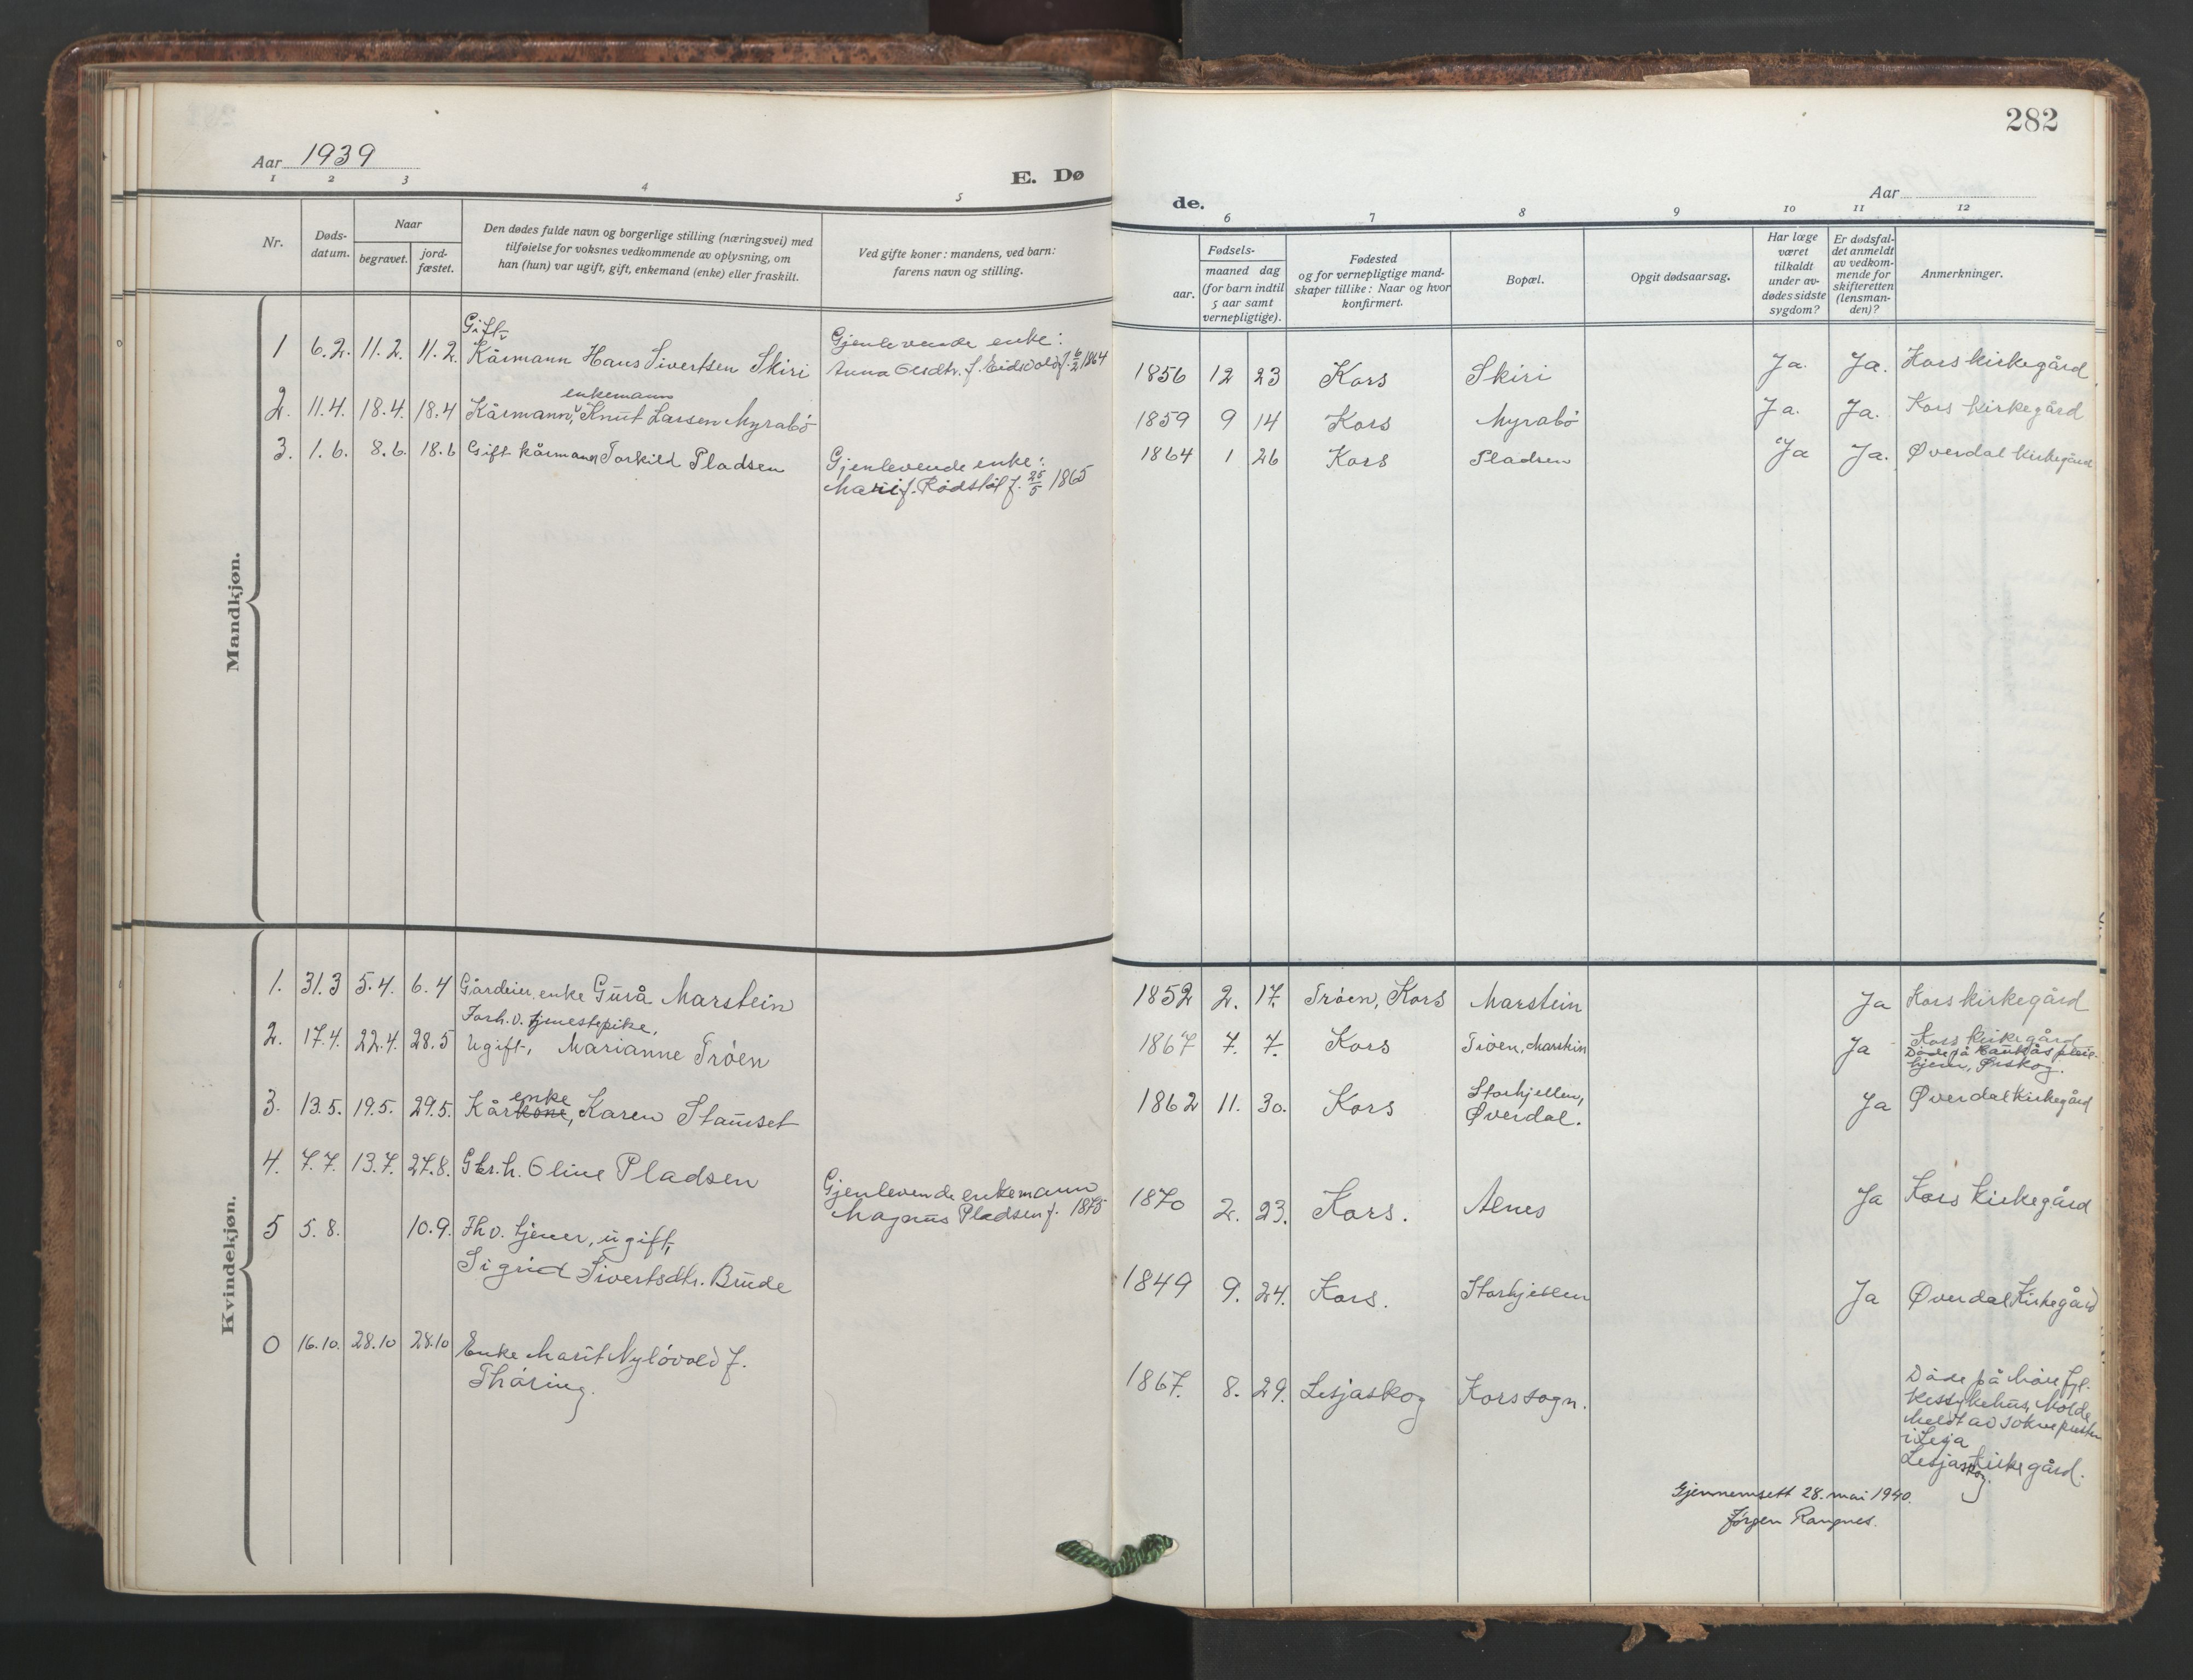 282
Aar 1939
E. Døde.
Aar
1 2 3 4 5 6 7 8 9 10 11 12
Nr.
Døds-
datum.
Naar
begravet.
jord-
fæstet.
Den dødes fulde navn og borgerlige stilling (næringsvei) med
tilføielse for voksnes vedkommende av oplysning, om
han (hun) var ugift, gift, enkemand (enke) eller fraskilt.
Ved gifte koner: mandens, ved barn:
farens navn og stilling.
Fødsels-
aar.
maaned dag
(for barn indtil
5 aar samt
vernepligtige).
Fødested
og for vernepligtige mand-
skaper tillike: Naar og hvor
konfirmert.
Bopæl.
Opgit dødsaarsag.
Har læge
været
tilkaldt
under av-
dødes sidste
sygdom?
Er dødsfal-
det anmeldt
av vedkom-
mende for
skifteretten
(lensman-
den)?
Anmerkninger.
Mandkjøn.
Gift
1 6.2. 11.2. 11.2. Kårmann Hans Sivertsen Skiri
Gjenlevende enke:
Anna Olsdtr. f. Eidsvold f. 6/2 1864
1856 12 23 Kors Skiri Ja. Ja. Kors kirkegård
enkemann
2. 11.4. 18.4. 18.4 Kårmann, Knut Larsen Myrabö
1859 9 14 Kors Myrabö Ja. Ja. Kors kirkegård
3. 1.6. 8.6. 18.6 Gift kårmann Torkild Pladsen
Gjenlevende enke:
Mari f. Rödstöl f. 25/5 1865
1864 1 26 Kors Pladsen Ja Ja. Øverdal kirkegård
Kvindekjøn.
1. 31.3 5.4. 6.4 Gårdeier enke Gurå Marstein
1852 2. 17. Tröen, Kors Marstein Ja Kors kirkegård
Forh.v. tjenestepike,
2. 17.4. 22.4. 28.5 Ugift, Marianne Tröen
1867 7. 7. Kors Tröen, Marstein Ja Kors kirkegård
Döde på pleie-
hjem, Ørskog.
enke
3. 13.5. 19.5. 29.5. Kårkone, Karen Stamset
1862 11. 30. Kors Storhjellen,
Øverdal. Ja Øverdal kirkegård
4. 7.7. 13.7. 27.8. Gbr.h. Oline Pladsen
Gjenlevende enkemann
Magnus Pladsen f. 1875
1870 2. 23. Kors. Alnes Ja Kors kirkegård
5 5.8. 10.9. Fhv. tjener, ugift,
Sigrid Sivertsdtr. Brude
1849 9. 24. Kors. Storhjellen Ja Øverdal Kirkegård
0 16.10. 28.10 28.10 Enke Marit Nylövold f.
Thöring.
1867. 8. 29. Lesjaskog Kors sogn.
Döde på Möre fyl-
kessykehus, Molde
Meldt av soknepresten
i Lesja
Lesjaskog kirkegård.
Gjennemsett 28. mai 1940.
Jörgen Rangnes.